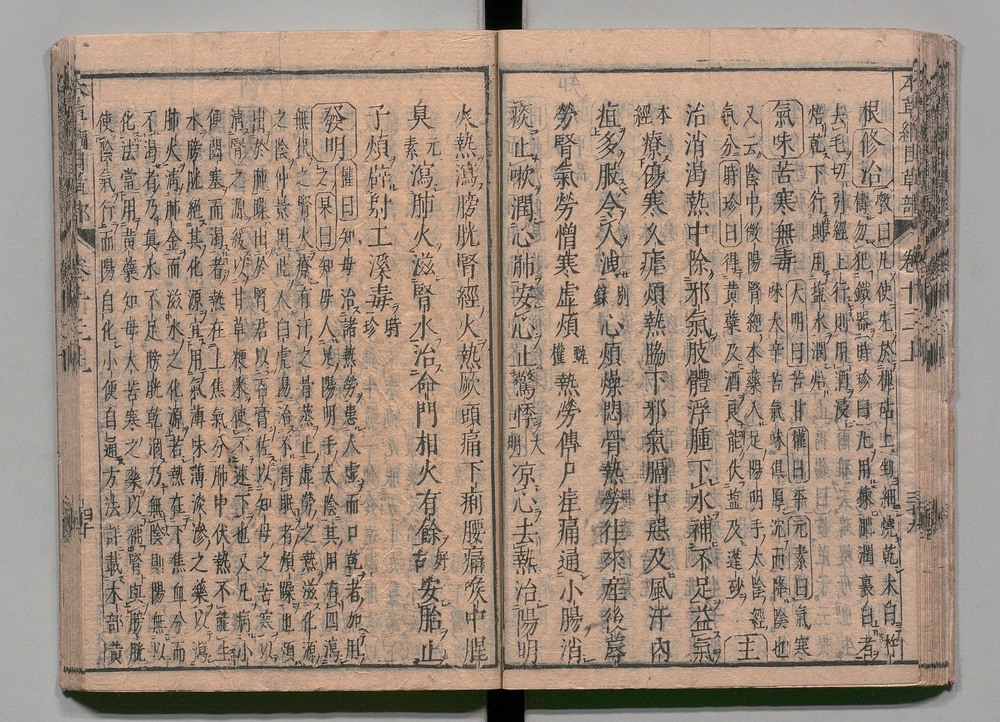 本草綱目草部 卷十二上
根修治斆曰凡使先於槐砧上剉細燒乾木臼杵
搗勿犯鐵器時珍曰凡用揀肥潤裏白者
去毛切引經上行則用酒浸
焙乾下行則用鹽水潤焙
氣味苦寒無毒大明曰苦甘權曰平元素曰氣寒
味大辛苦氣味俱厚沉而降陰也
又云陰中微陽腎經本藥入足陽明手太陰經
氣分時珍曰得黃蘗及酒良能伏鹽及蓬砂 主
治消渴熱中除邪氣肢體浮腫下水補不足益氣
本經 療傷寒久瘧煩熱脇下邪氣膈中惡及風汗內
疸多服令人洩別錄 心煩燥悶骨熱勞往來產後蓐
勞腎氣勞憎寒虛煩甄權 熱勞傳尸疰痛通小腸消
痰止嗽潤心肺安心止驚悸大明 凉心去熱治陽明
火熱瀉膀胱腎經火熱厥頭痛下痢腰痛喉中腥
臭元素 瀉肺火滋腎水治命門相火有餘好古 安胎止
子煩辟射工溪毒時珍
發明權曰知母治諸熱勞患人虛而口乾者加用
之杲曰知母入足陽明手太陰其用有四瀉
無根之腎火療有汗之骨蒸止虛勞之熱滋化源
之陰仲景用此入白虎湯治不得眠者煩躁也煩
出於肺躁出於腎君以石膏佐以知母之苦寒以
清腎之源緩以甘草粳米使不速下也又凡病小
便閟塞而渴者熱在上焦氣分肺中伏熱不能生
水膀胱絕其化源宜用氣薄味薄淡滲之藥以瀉
肺火清肺金而滋水之化源若熱在下焦血分而
不渴者乃真水不足膀胱乾涸乃無陰則陽無以
化法當用黃蘗知母大苦寒之藥以補腎與膀胱
使陰氣行而陽自化小便自通方法詳載木部黃